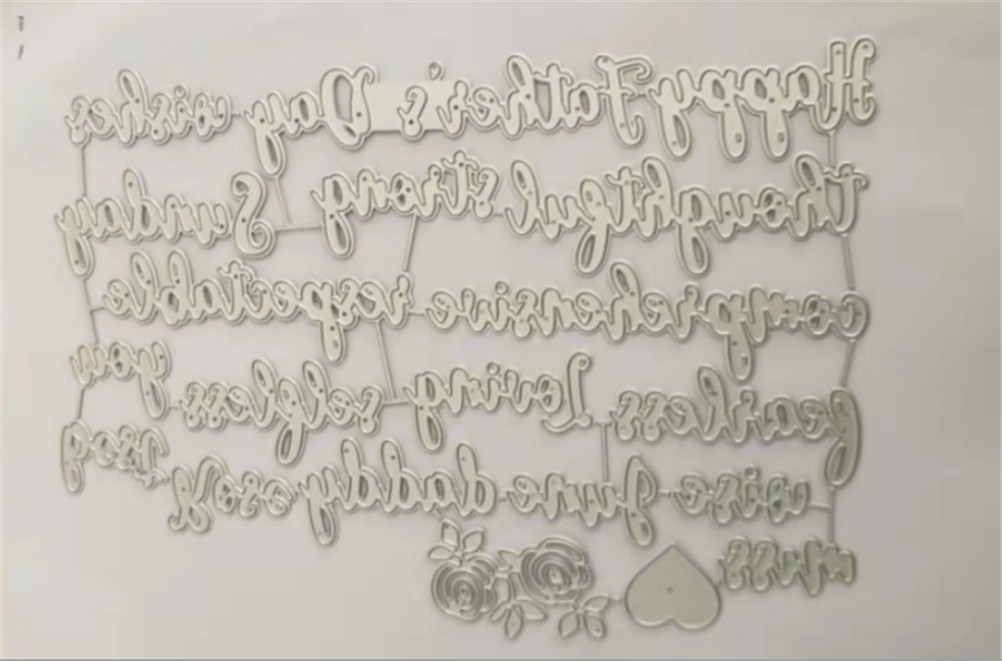 Happy Father's Day wishes
thoughtful strong Sunday
comprehensive respectable
fearless Loving selfless you
wise June daddy
miss